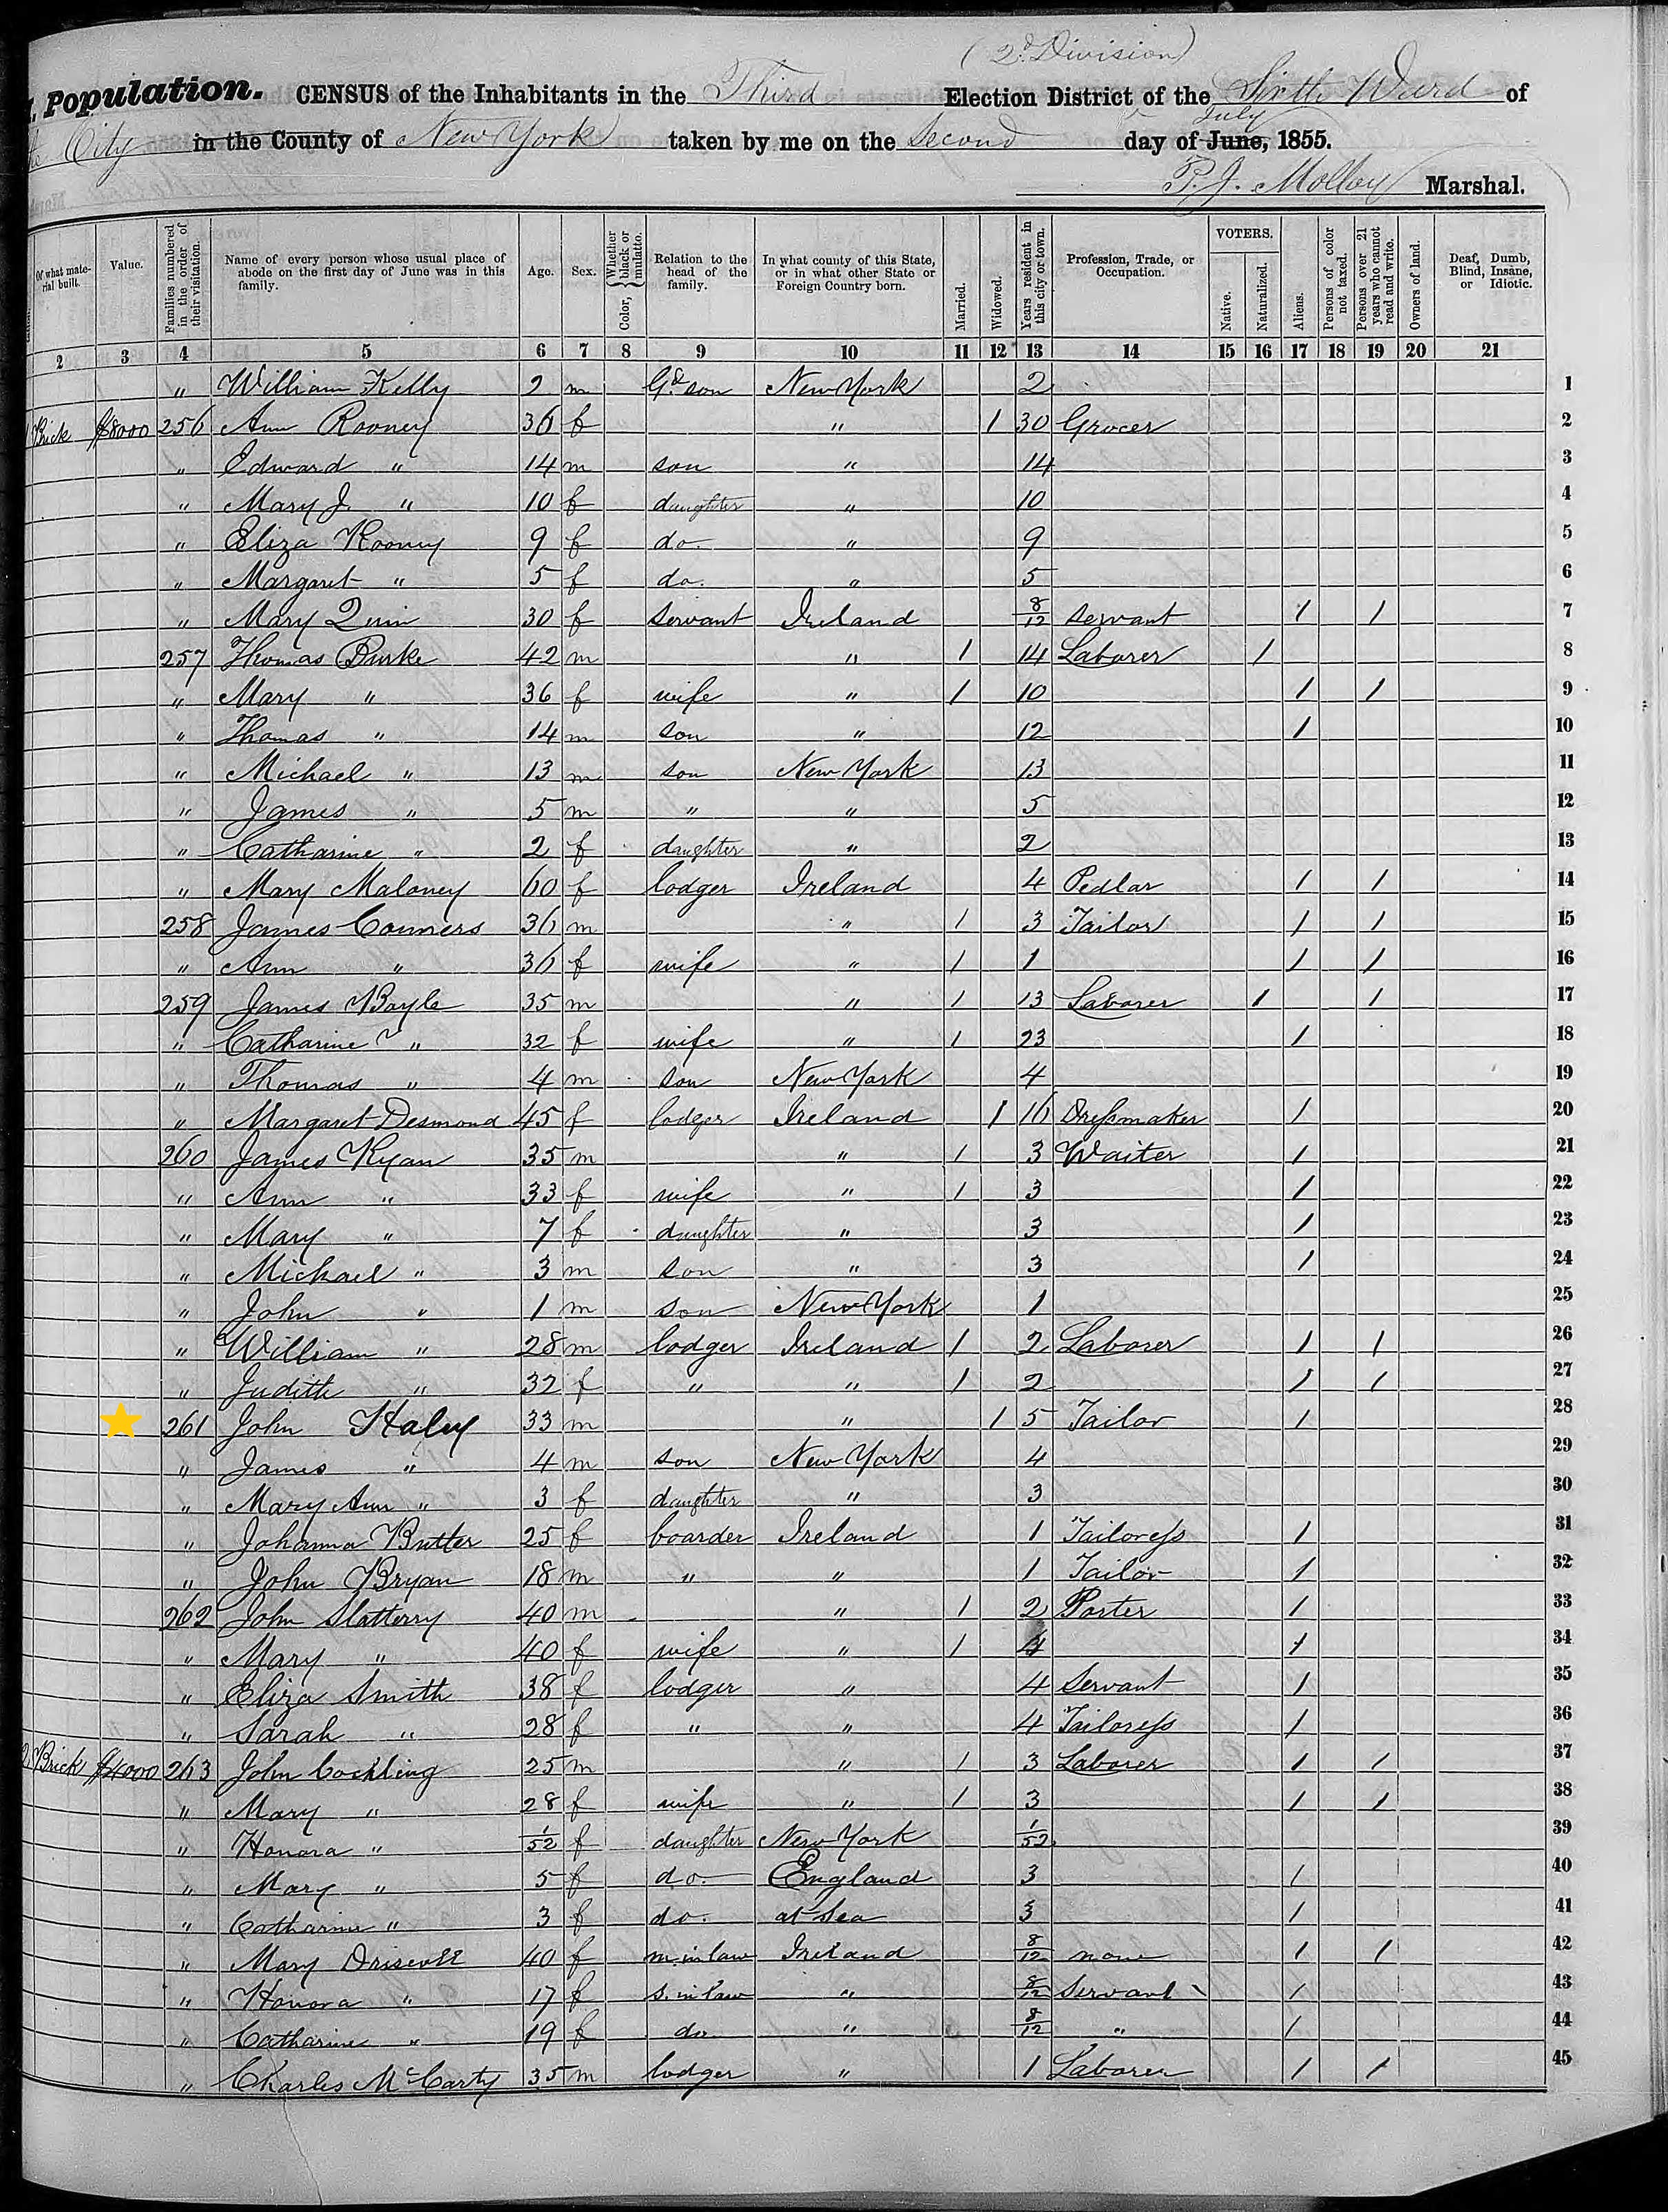 (2d Division)
Population. CENSUS of the Inhabitants in the Third Election District of the Sixth Ward of
City in the County of New York taken by me on the Second day of June, July 1855.
P. J. Molloy Marshal.
Of what material built. Value. Families numbered in the order of their visitation. Name of every person whose usual place of abode on the first day of June was in this family. Age. Sex. Color, Whether black or mulatto. Relation to the head of the family. In what county of this State, or in what other State or Foreign Country born. Married. Widowed. Years resident in this city or town. Profession, Trade, or Occupation. VOTERS. Native. Naturalized. Aliens. Persons of color not taxed. Persons over 21 years who cannot read and write. Owners of land. Deaf, Dumb, Blind, Insane, or Idiotic.
2 3 4 5 6 7 8 9 10 11 12 13 14 15 16 17 18 19 20 21
" William Kelly 2 m Gd son New York 2 1
Brick $8000 256 Ann Rooney 36 f " 1 30 Grocer 2
" Edward " 14 m son " 14 3
" Mary J. " 10 f daughter " 10 4
" Eliza Rooney 9 f do. " 9 5
" Margaret " 5 f do. " 5 6
" Mary Quin 30 f servant Ireland 8/12 servant 1 1 7
257 Thomas Burke 42 m " 1 14 Laborer 1 8
" Mary " 36 f wife " 1 10 1 1 9
" Thomas " 14 m son " 12 1 10
" Michael " 13 m son New York 13 11
" James " 5 m " " 5 12
" Catharine " 2 f daughter " 2 13
" Mary Maloney 60 f lodger Ireland 4 Pedlar 1 1 14
258 James Conners 36 m " 1 3 Tailor 1 1 15
" Ann " 36 f wife " 1 1 1 1 16
259 James Boyle 35 m " 1 13 Laborer 1 1 17
" Catharine " 32 f wife " 1 23 1 18
" Thomas " 4 m son New York 4 19
" Margaret Desmond 45 f lodger Ireland 1 16 Dressmaker 1 20
260 James Ryan 35 m " 1 3 Waiter 1 21
" Ann " 33 f wife " 1 3 1 22
" Mary " 7 f daughter " 3 1 23
" Michael " 3 m son " 3 1 24
" John " 1 m son New York 1 25
" William " 28 m lodger Ireland 1 2 Laborer 1 1 26
" Judith " 32 f " " 1 2 1 1 27
261 John Haley 33 m " 1 5 Tailor 1 28
" James " 4 m son New York 4 29
" Mary Ann " 3 f daughter " 3 30
" Johanna Butler 25 f boarder Ireland 1 Tailoress 1 31
" John Bryan 18 m " " 1 Tailor 1 32
262 John Slatterry 40 m " 1 2 Porter 1 33
" Mary " 40 f wife " 1 4 1 34
" Eliza Smith 38 f lodger " 4 Servant 1 35
" Sarah " 28 f " " 4 Tailoress 1 36
Brick $4000 263 John Cockling 25 m " 1 3 Laborer 1 1 37
" Mary " 28 f wife " 1 3 1 1 38
" Honora " 1/52 f daughter New York 1/52 39
" Mary " 5 f do. England 3 1 40
" Catharine " 3 f do. at Sea 3 1 41
" Mary Driscoll 40 f m. in law Ireland 8/12 none 1 1 42
" Honora " 17 f s. in law " 8/12 Servant 1 43
" Catharine " 19 f do " 8/12 " 1 44
" Charles McCarty 35 m lodger " 1 Laborer 1 1 45